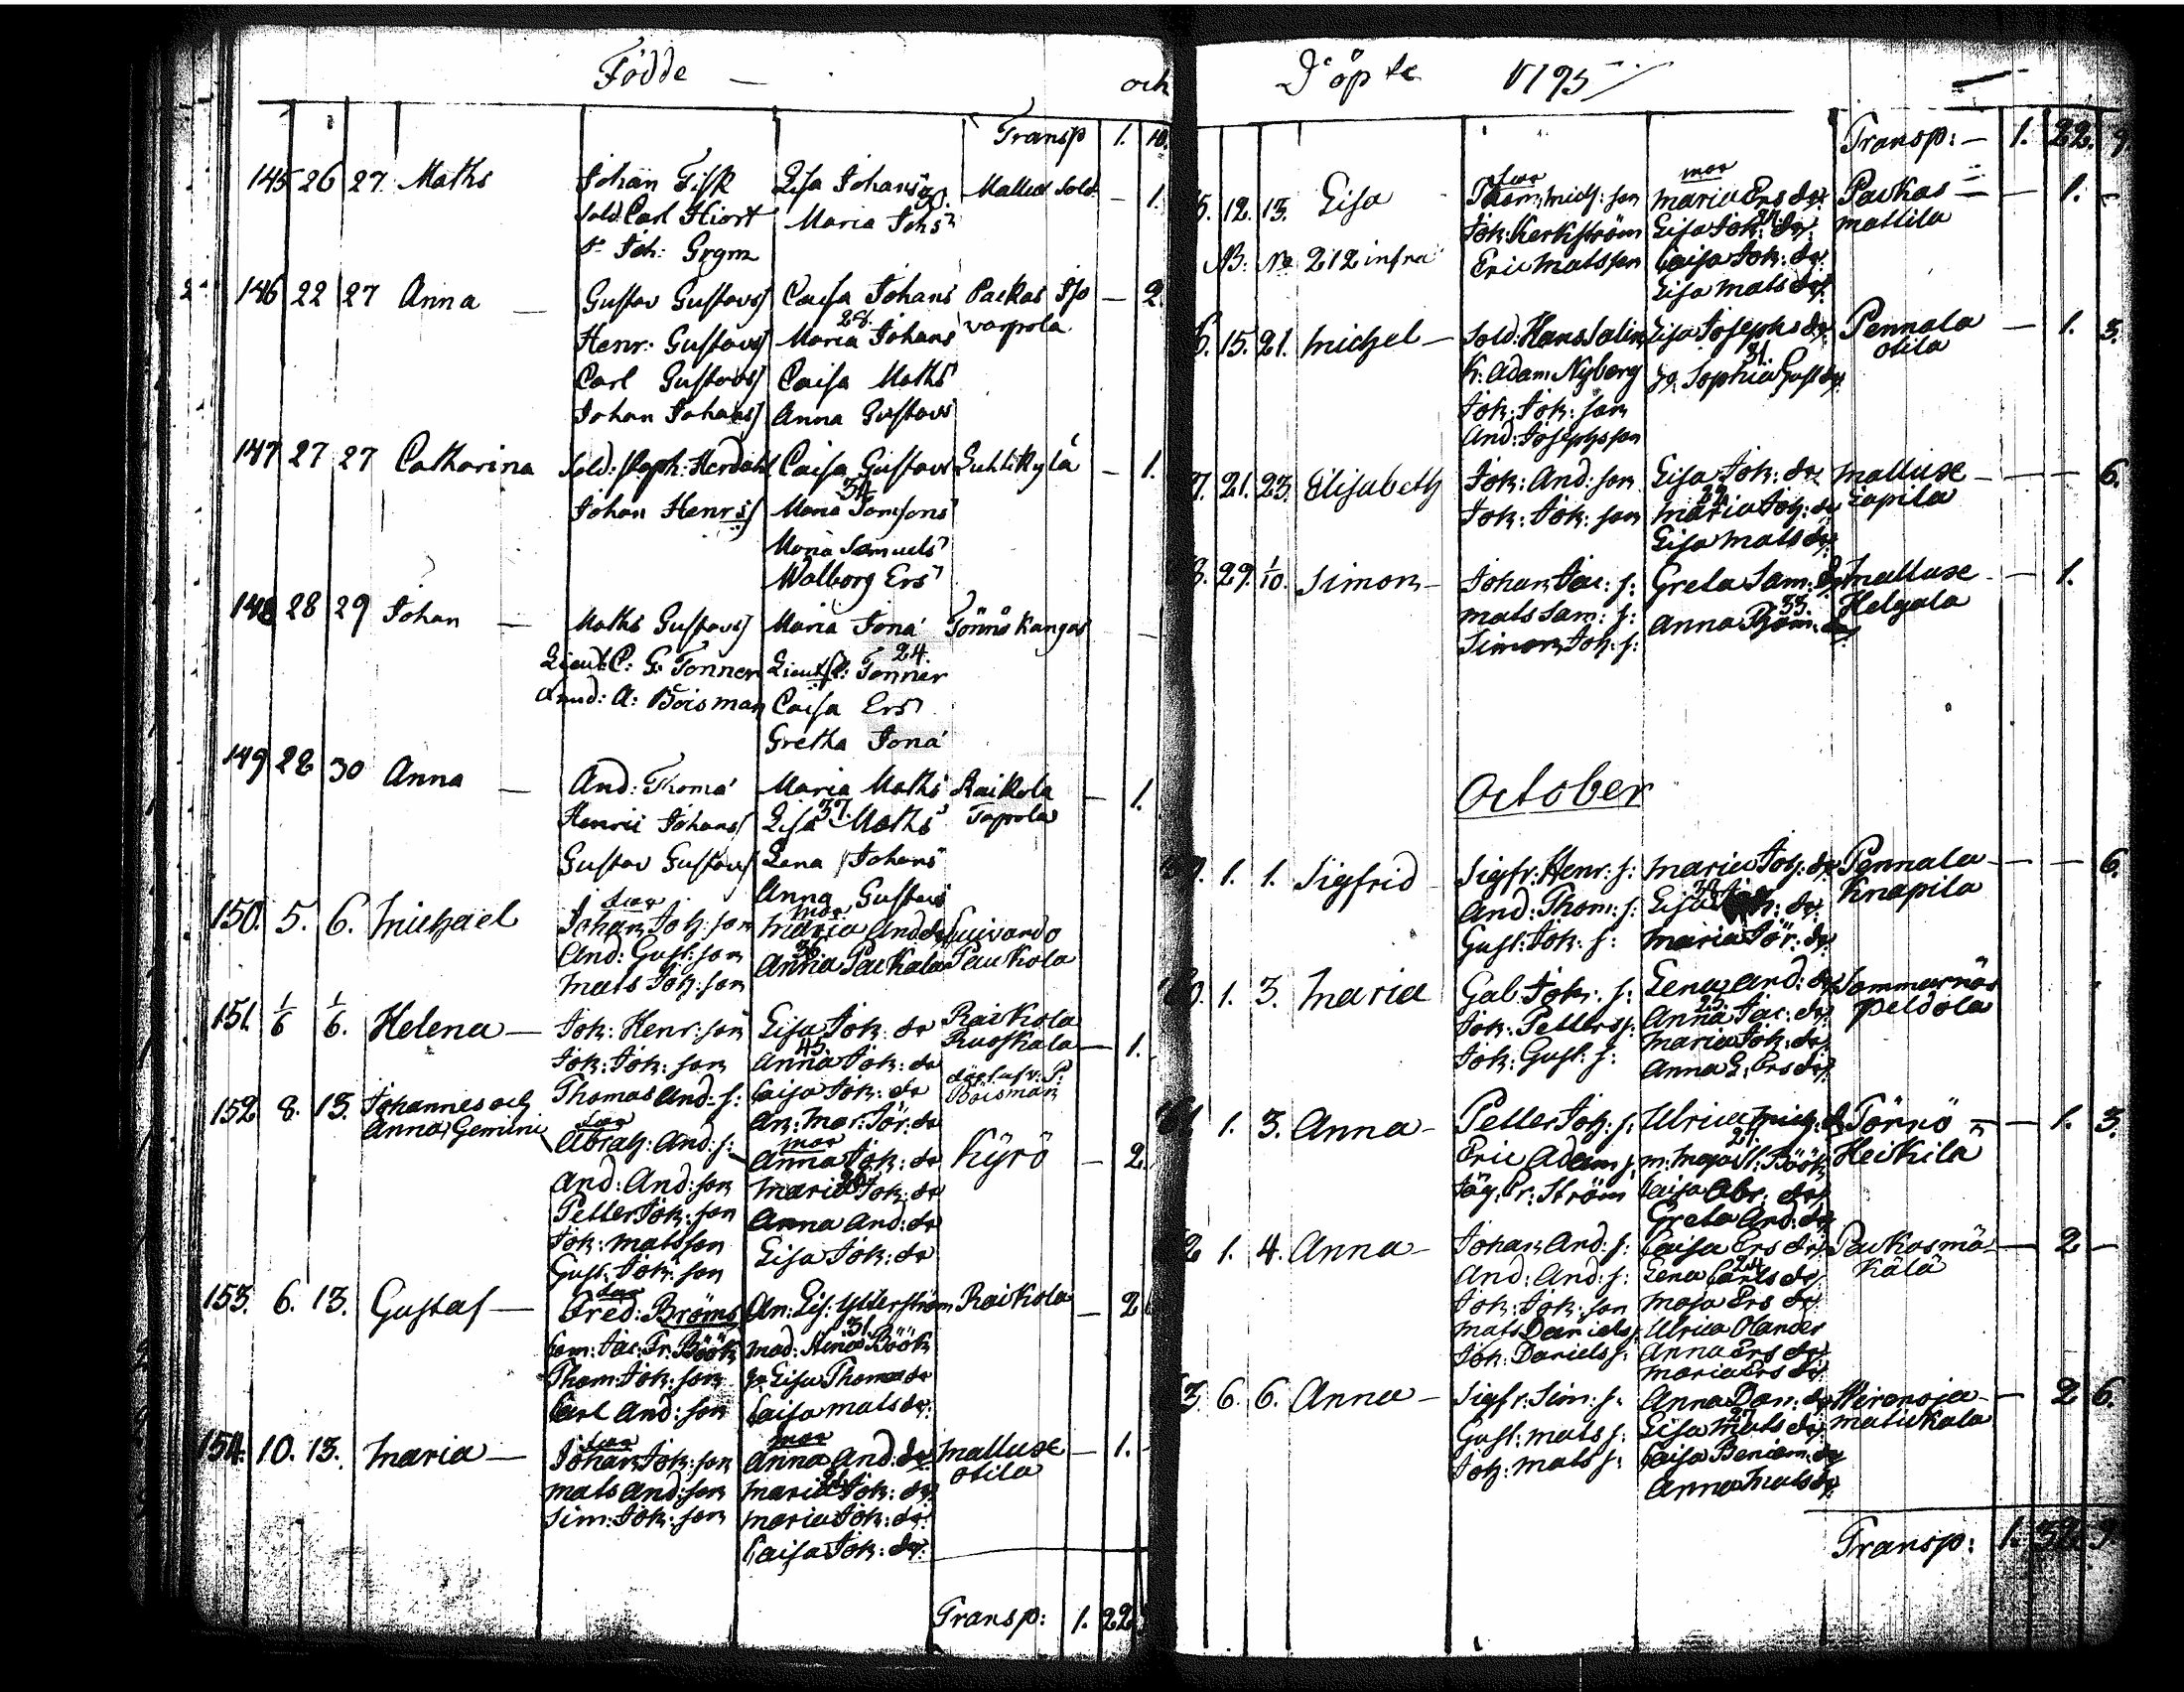 Födde — och
Transp 1. 10.
145 26 27. Maths Johan Fisk Lisa Johans Mallus Sold. — 1.
Sold. Carl Hiort Maria Johs
Joh: Grgrn
146 22 27 Anna — Gustav Gustavs Caisa Johans Packas Iso — 2.
28.
Henr: Gustavs Maria Johans varpola
Carl Gustavs Caisa Maths
Johan Johans Anna Gustavs
147 27 27 Catharina Sold: Staph: Herdahl Caisa Gustavs Suhlkylä — 1.
34
Johan Henrs Maria Tomsons
Maria Samuels
Walborg Ers
148 28 29 Johan — Maths Gustavs Maria Jona Tönnö Kangas —
24.
Lieut. C: G: Tonner Lieut: Tonner
A: Böisman Caisa Ers
Gretha Jona
149 28 30 Anna — And: Thoma Maria Maths Raikola — 1.
37.
Henric Johans Lisa Maths Tapola
Gustav Gustavs Lena Johans
Anna Gustavs
150. 5. 6. Michael Johan Joh: son Maria And dr
And: Gust: son Anna Paukala Paukola
Mats Joh: son
151. 1/6 1/6. Helena — Joh: Henr: son Lisa Joh: dr Raikola
45.
Joh: Joh: son Anna Joh: dr Ruoskala — 1.
Thomas And: s: Caisa Joh: dr
An: Mar: Jör: dr Böisman
152 8. 13. Johannes och
Anna Gemini Abrah: And: s: Anna Joh: dr Kyrö — 2.
mor
And: And: son Maria Joh: dr
Petter Joh: son Anna And: dr
Joh: Matsson Lisa Joh: dr
Gust: Joh: son
153. 6. 13. Gustaf — Fred: Bröms An: Lis: Ytterström Raikola — 2
31.
Com: Jac: Fr. Böök Mad: Böök
Thom: Joh: son Lisa Thomas dr
Carl And: son Caisa Mats dr:
154. 10. 13. Maria — Johan Joh: son Anna And: dr Malluse — 1. -
mor
Mats And: son Maria Joh: dr otila
Sim: Joh: son Maria Joh: dr:
Caisa Joh: dr:
Transp: 1. 22
Döpte 1795
Transp: — 1. 22. 9.
mor
5. 12. 13. Lisa Thom: Mich: son Maria Ers dr: Packas — — 1. -
Joh: Kerkström Lisa Joh: dr: mattila
NB: No 212 infra Eric Matsson Caisa Joh: dr:
Lisa Mats dr:
6. 15. 21. Michel — Sold: Hans Salin Lisa Josephs dr: Pennala — 1. 3.
31.
K: Adam Nyberg Sophia Gust dr: otila
Joh: Joh: son
And: Josephsson
7. 21. 23. Elisabeth Joh: And: son Lisa Joh: dr Malluse — — 6.
22.
Joh: Joh: son Maria Joh: dr
Lisa Mats dr:
8. 29. 1/10. Simon — Johan Jac: s: Greta Sam: dr Malluse — 1.
33.
Mats Sam: s: Anna Helgala
Simon Joh: s:
October
9. 1. 1. Sigfrid Sigfr: Henr: s: Maria Joh: dr Pennala — — 6.
And: Thom: s: Lisa Knapila
Gust: Joh: s: Maria Jör: dr:
1. 3. Maria Gab: Joh: s: Lena And: dr Sammarnäs
25.
Joh: Petters s: Anna Jac: dr Peldola
Joh: Gust: s: Maria Joh: dr
Anna G: Ers dr:
1. 3. Anna — Petter Joh: s: Ulrica Mich: dr Törnö — — 1. 3.
21.
Eric Adam s: m: Maja St: Böök Heikila
Jäg: Pr: Ström Caisa Abr: dr:
Greta And: dr
2 1. 4. Anna — Johan And: s: Caisa Ers dr: Packasmä — 2 —
24
And: And: s: Lena Carls dr: källä
Joh: Joh: son Maja Ers dr
Mats Daniels s: Ulrica Olander
Joh: Daniels s: Anna Ers dr:
Maria Ers dr:
3. 6. 6. Anna — Sigfr: Sim: s: Anna Dan: dr Hirvoja — 2 6.
27
Gust: Mats s: Lisa Mats dr: matickala
Joh: Mats s: Caisa Beniam: dr
Anna Mats dr:
Transp: 1. 32.